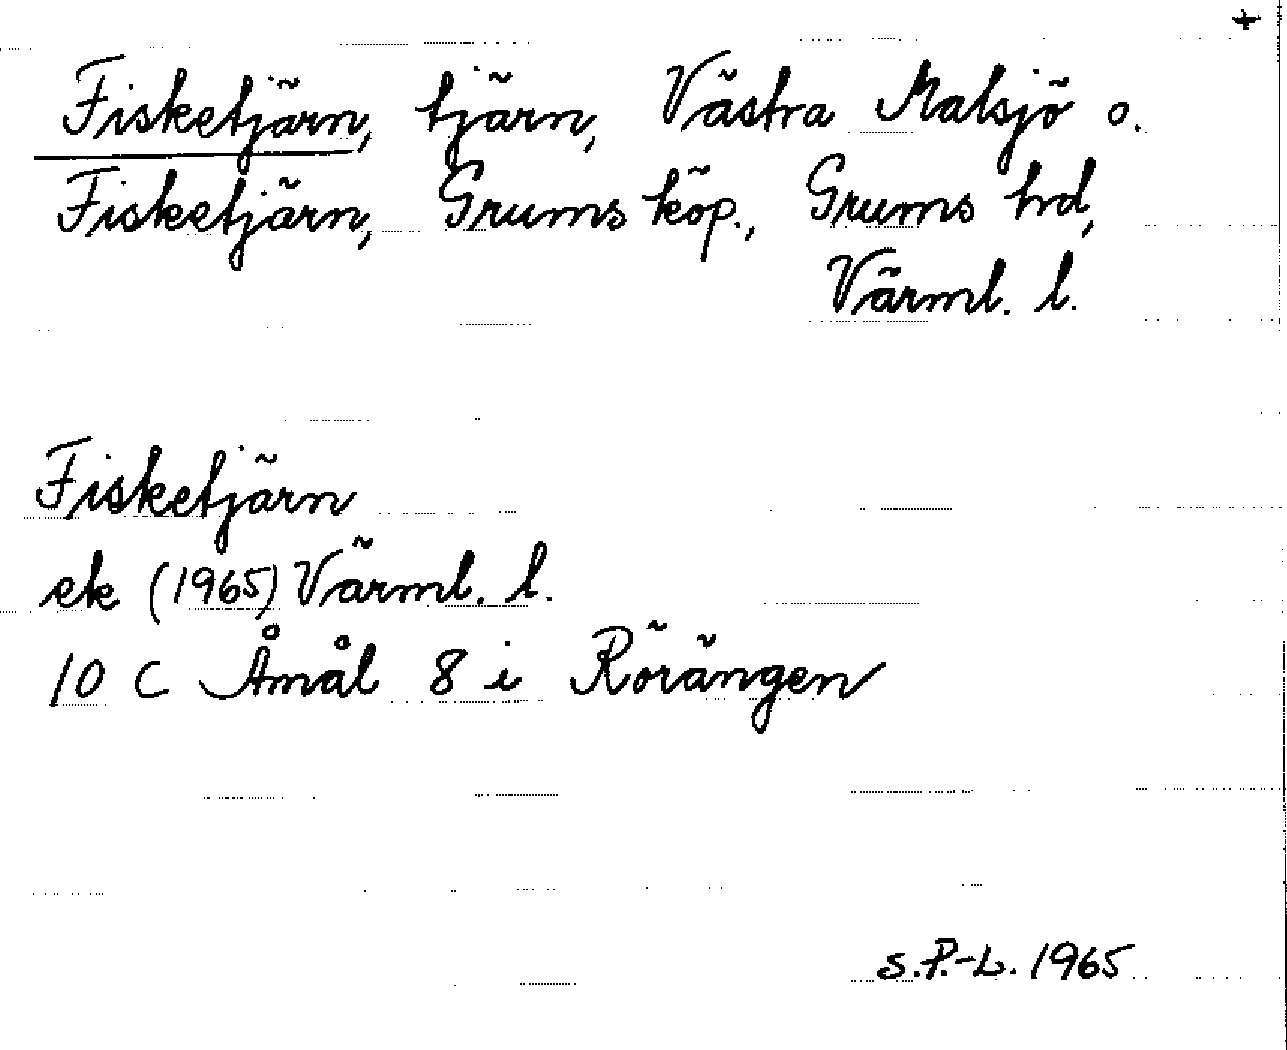 +
Fisketjärn, tjärn, Västra Malsjö o.
Fisketjärn, Grums köp., Grums hd,
Värml. l.
Fisketjärn
ek (1965) Värml. l.
10 C Åmål 8 i Rörängen
S.P.-L. 1965